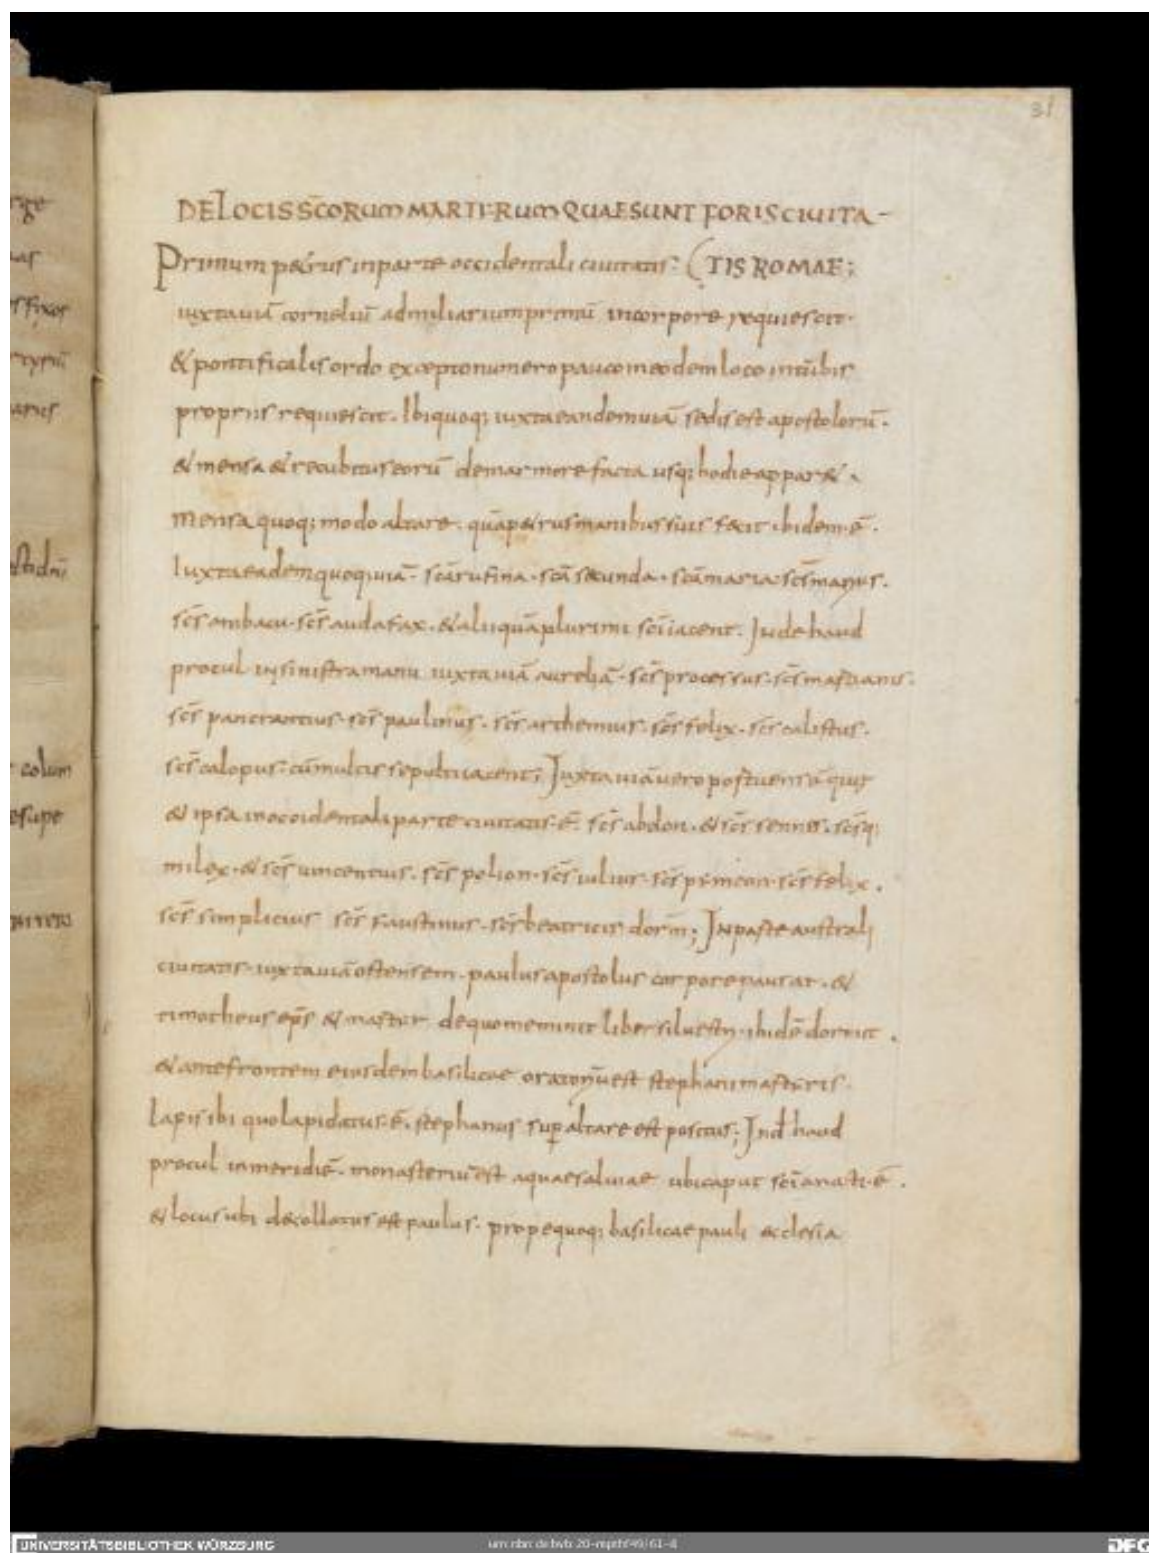 31
DE LOCIS SC̄ORUM MARTIRUM QUAE SUNT FORIS CIUITA-
Primum petrus in parte occidentali ciuitatis· (TIS ROMAE;
iuxta uiā corneliū ad miliarium primū in corpore requiescit·
& pontificalis ordo excepto numero pauco in eodem loco in tūbis
propriis requiescit. Ibi quoq; iuxta eandem uiā sedis est apostolorū.
& mensa & recubitus eorū de marmore facta usq; hodie appar&.
mensa quoq; modo altare. quā petrus manibus suis fecit ibidem ē.
Iuxta eadem quoq; uiā· scā rufina· scā secunda· scā maria· scs̄ marius.
scs̄ ambacu· scs̄ audafax. & alii quā plurimi scī iacent. Inde haud
procul in sinistra manu iuxta uiā aureliā· scs̄ processus· scs̄ martianus.
scs̄ pancrantius· scs̄ paulinus. scs̄ arthemius. scs̄ felix. scs̄ calistus.
scs̄ calopus· cū multis sepulti iacent; Iuxta uiā uero portuensē quę
& ipsa in occidentali parte ciuitatis ē. scs̄ abdon. & scs̄ sennes. scs̄q;
milex. & scs̄ uincentius. scs̄ polion· scs̄ iulius· scs̄ pymeon· scs̄ felix.
scs̄ simplicius scs̄ faustinus. scs̄ beatricis dorm̄; In parte australi
ciuitatis· iuxta uiā ostensem. paulus apostolus corpore pausat. &
timotheus ep̄s & martyr de quo meminit liber siluestri· ibidē dormit.
& ante frontem eiusdem basilicae oratoriū est stephani martyris.
Lapis ibi quo lapidatus ē. stephanus sup̄ altare est positus; Ind̄ haud
procul in meridiē. monasteriū est aquae saluiae ubi caput scī anastı ē.
& locus ubi decollatus est paulus. prope quoq; basilicae pauli ecclesia
UNIVERSITÄTSBIBLIOTHEK WÜRZBURG
urn:nbn:de:bvb:20-mpthf49/61-4
DFG